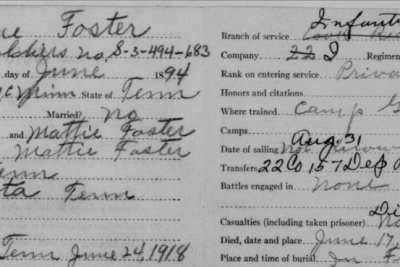 Foster
No. S-3-494-683
day of June 1894
McMinn State of Tenn
Married? No
and Mattie Foster
Mattie Foster
Tenn
Tenn
Tenn June 24, 1918
Infantry
Branch of service
Company 22 I Regiment
Rank on entering service Private
Honors and citations
Where trained Camp G
Camps
Aug 31
Date of sailing
Transfers 22 Co 157 Dep
Battles engaged in None
Casualties (including taken prisoner)
Died, date and place June 17,
Place and time of burial In F